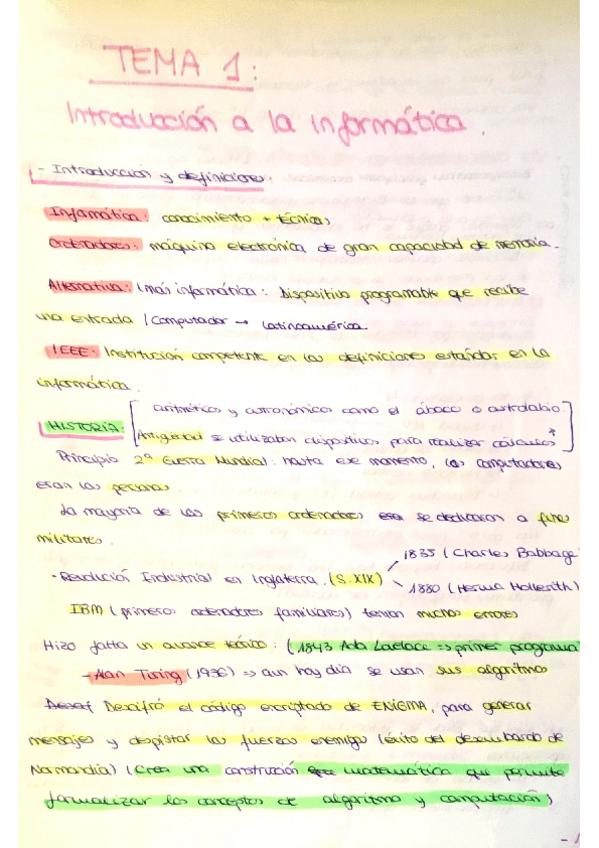 TEMA 1:
Introducción a la informática.
- Introducción y definiciones:
Informática: conocimiento + técnicas
Ordenadores: máquina electrónica de gran capacidad de memoria.
Alternativa: (más informática: Dispositivo programable que recibe
una entrada / Computador → Latinoamérica.
IEEE: Institución competente en las definiciones estándar en la
informática.
aritméticos y astronómicos como el ábaco o astrolabio
HISTORIA: Antigüedad se utilizaban dispositivos para realizar cálculos *
Principio 2ª Guerra Mundial: hasta ese momento, los computadores
eran las personas.
La mayoría de los primeros ordenadores se dedicaron a fines
militares.
1835 (Charles Babbage
- Revolución Industrial en Inglaterra. (S. XIX)
1880 (Herman Hollerith)
IBM (primeros ordenadores familiares) tenían muchos errores
Hizo falta un avance teórico: (1843 Ada Lovelace => primer programa
- Alan Turing (1936) => aun hoy día se usan sus algoritmos
Descifró el código encriptado de ENIGMA, para generar
mensajes y despistar las fuerzas enemigas (éxito del desembarco de
Normandía) (Crea una construcción matemática que permite
formalizar los conceptos de algoritmo y computación)